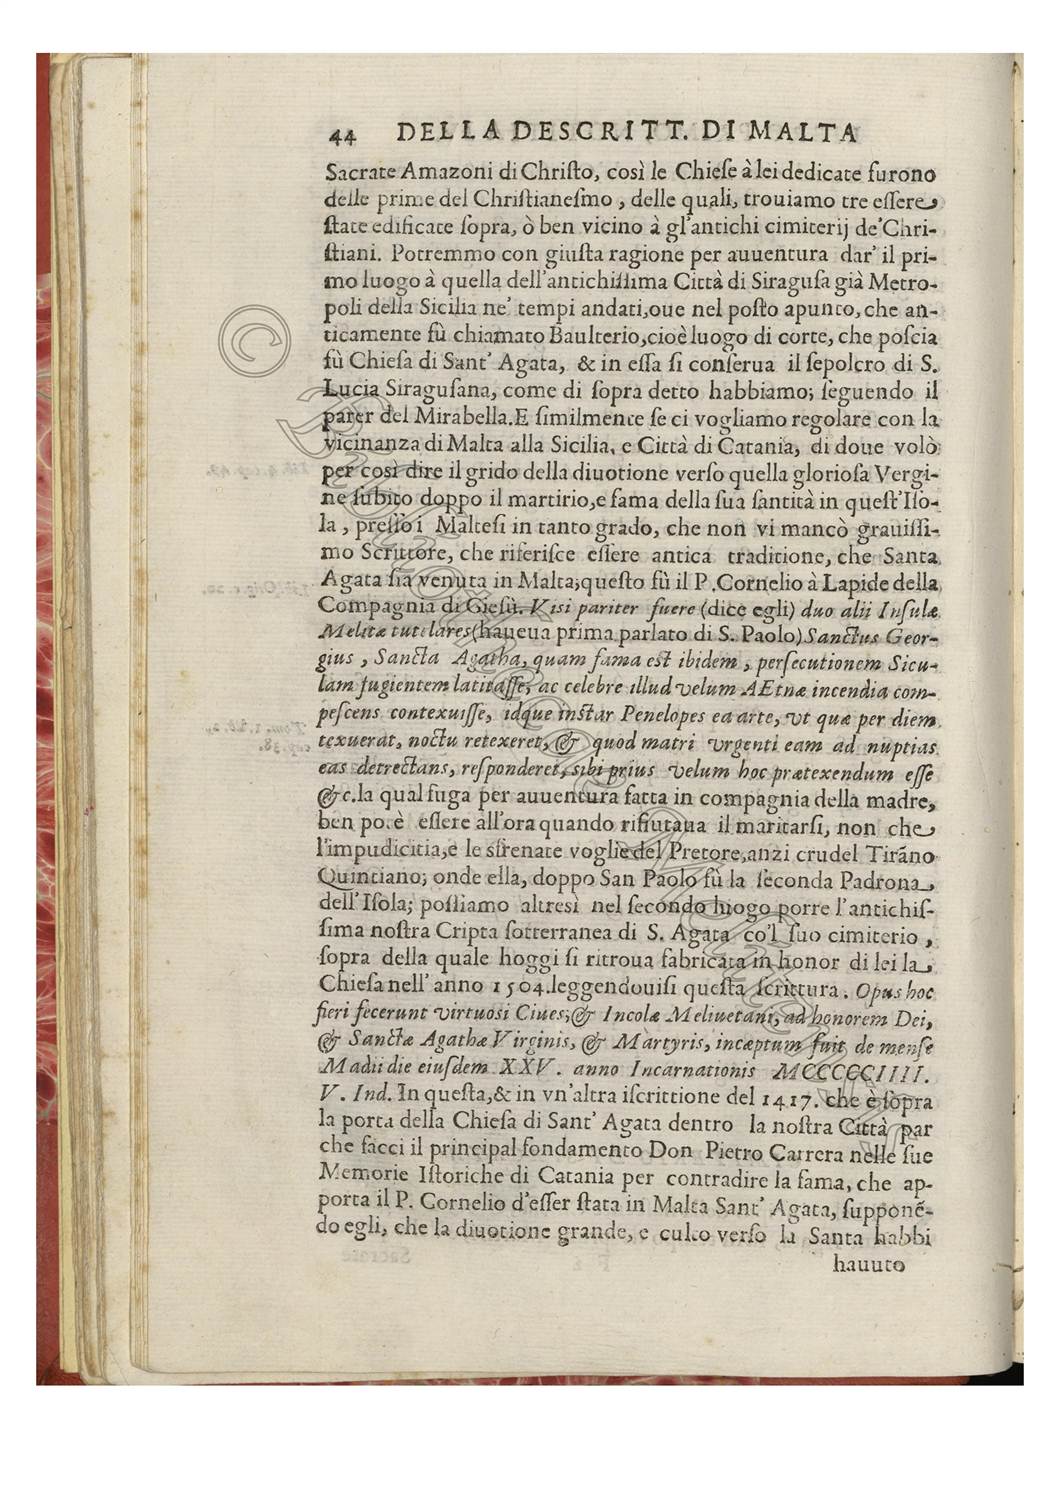 44 DELLA DESCRITT. DI MALTA
Sacrate Amazoni di Chriſto, così le Chieſe à lei dedicate furono
delle prime del Chriſtianeſmo, delle quali, trouiamo tre eſſere
ſtate edificate ſopra, ò ben vicino à gl'antichi cimiterij de'Chri-
ſtiani. Potremmo con giuſta ragione per auuentura dar' il pri-
mo luogo à quella dell'antichiſſima Città di Siraguſa già Metro-
poli della Sicilia ne' tempi andati, oue nel poſto apunto, che an-
ticamente fù chiamato Baulterio, cioè luogo di corte, che poſcia
fù Chieſa di Sant' Agata, & in eſſa ſi conſerua il ſepolcro di S.
Lucia Siraguſana, come di ſopra detto habbiamo; ſeguendo il
parer del Mirabella. E ſimilmente ſe ci vogliamo regolare con la
vicinanza di Malta alla Sicilia, e Città di Catania, di doue volò
per così dire il grido della diuotione verſo quella glorioſa Vergi-
ne ſubito doppo il martirio, e fama della ſua ſantità in queſt'Iſo-
la, preſſo i Malteſi in tanto grado, che non vi mancò grauiſſi-
mo Scrittore, che riferiſce eſſere antica traditione, che Santa
Agata ſia venuta in Malta; queſto fù il P. Cornelio à Lapide della
Compagnia di Gieſù. Viſi pariter fuere (dice egli) duo alii Inſulæ
Melitæ tutelares (haueua prima parlato di S. Paolo) Sanctus Geor-
gius, Sancta Agatha, quam fama est ibidem, perſecutionem Sicu-
lam fugientem latitaſſe, ac celebre illud velum AEtnæ incendia com-
peſcens contexuiſſe, idque instar Penelopes ea arte, vt quæ per diem
texuerat, noctu retexeret, & quod matri vrgenti eam ad nuptias
eas detrectans, reſponderet, ſibi prius velum hoc prætexendum eſſe
&c. la qual fuga per auuentura fatta in compagnia della madre,
ben può eſſere all'ora quando rifiutaua il maritarſi, non che
l'impudicitia, e le sfrenate voglie del Pretore, anzi crudel Tirãno
Quintiano; onde ella, doppo San Paolo fù la ſeconda Padrona
dell'Iſola; poſſiamo altresì nel ſecondo luogo porre l'antichiſ-
ſima noſtra Cripta ſotterranea di S. Agata co'l ſuo cimiterio,
ſopra della quale hoggi ſi ritroua fabricata in honor di lei la
Chieſa nell' anno 1504. leggendouiſi queſta ſcrittura. Opus hoc
fieri fecerunt virtuoſi Ciues; & Incolæ Meliuetani, ad honorem Dei,
& Sanctæ Agathæ Virginis, & Martyris, incæptum fuit de menſe
Madii die eiuſdem XXV. anno Incarnationis MCCCCCIIII.
V. Ind. In queſta, & in vn'altra iſcrittione del 1417. che è ſopra
la porta della Chieſa di Sant' Agata dentro la noſtra Città par
che facci il principal fondamento Don Pietro Carrera nelle ſue
Memorie Iſtoriche di Catania per contradire la fama, che ap-
porta il P. Cornelio d'eſſer ſtata in Malta Sant' Agata, ſupponẽ-
do egli, che la diuotione grande, e culto verſo la Santa habbi
hauuto